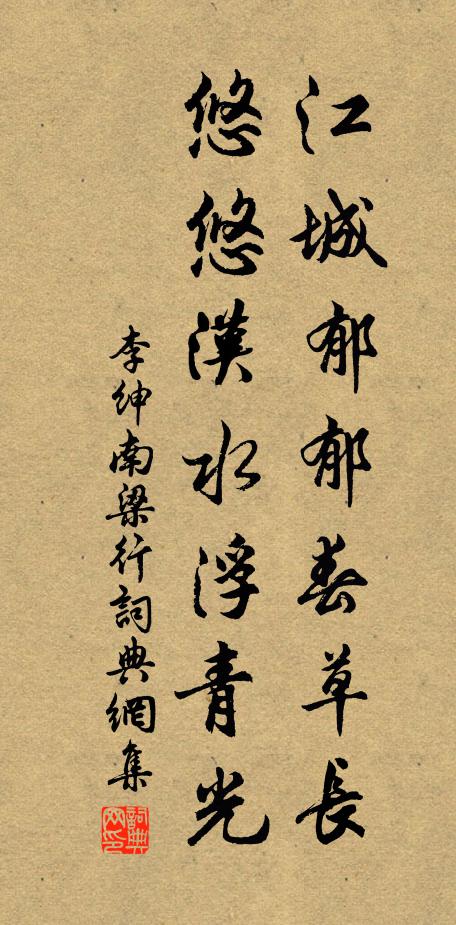 江城郁郁春草長
悠悠漢水浮青光
李紳南梁行詞典網集
詞典網印